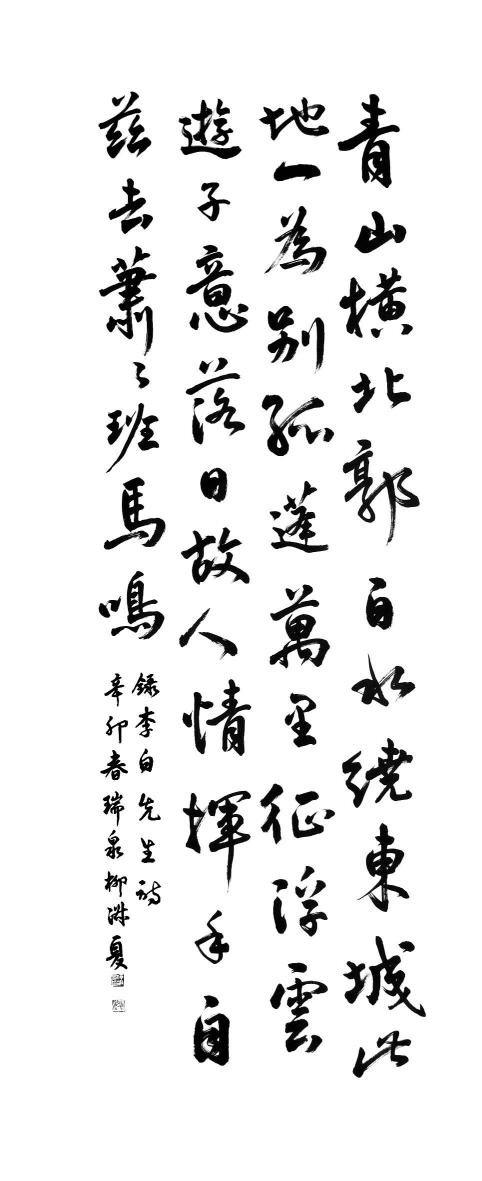 青山橫北郭白水繞東城此
地一為別孤蓬萬里征浮雲
遊子意落日故人情揮手自
茲去蕭〻班馬鳴
錄李白先生詩
辛卯春瑞泉柳夏